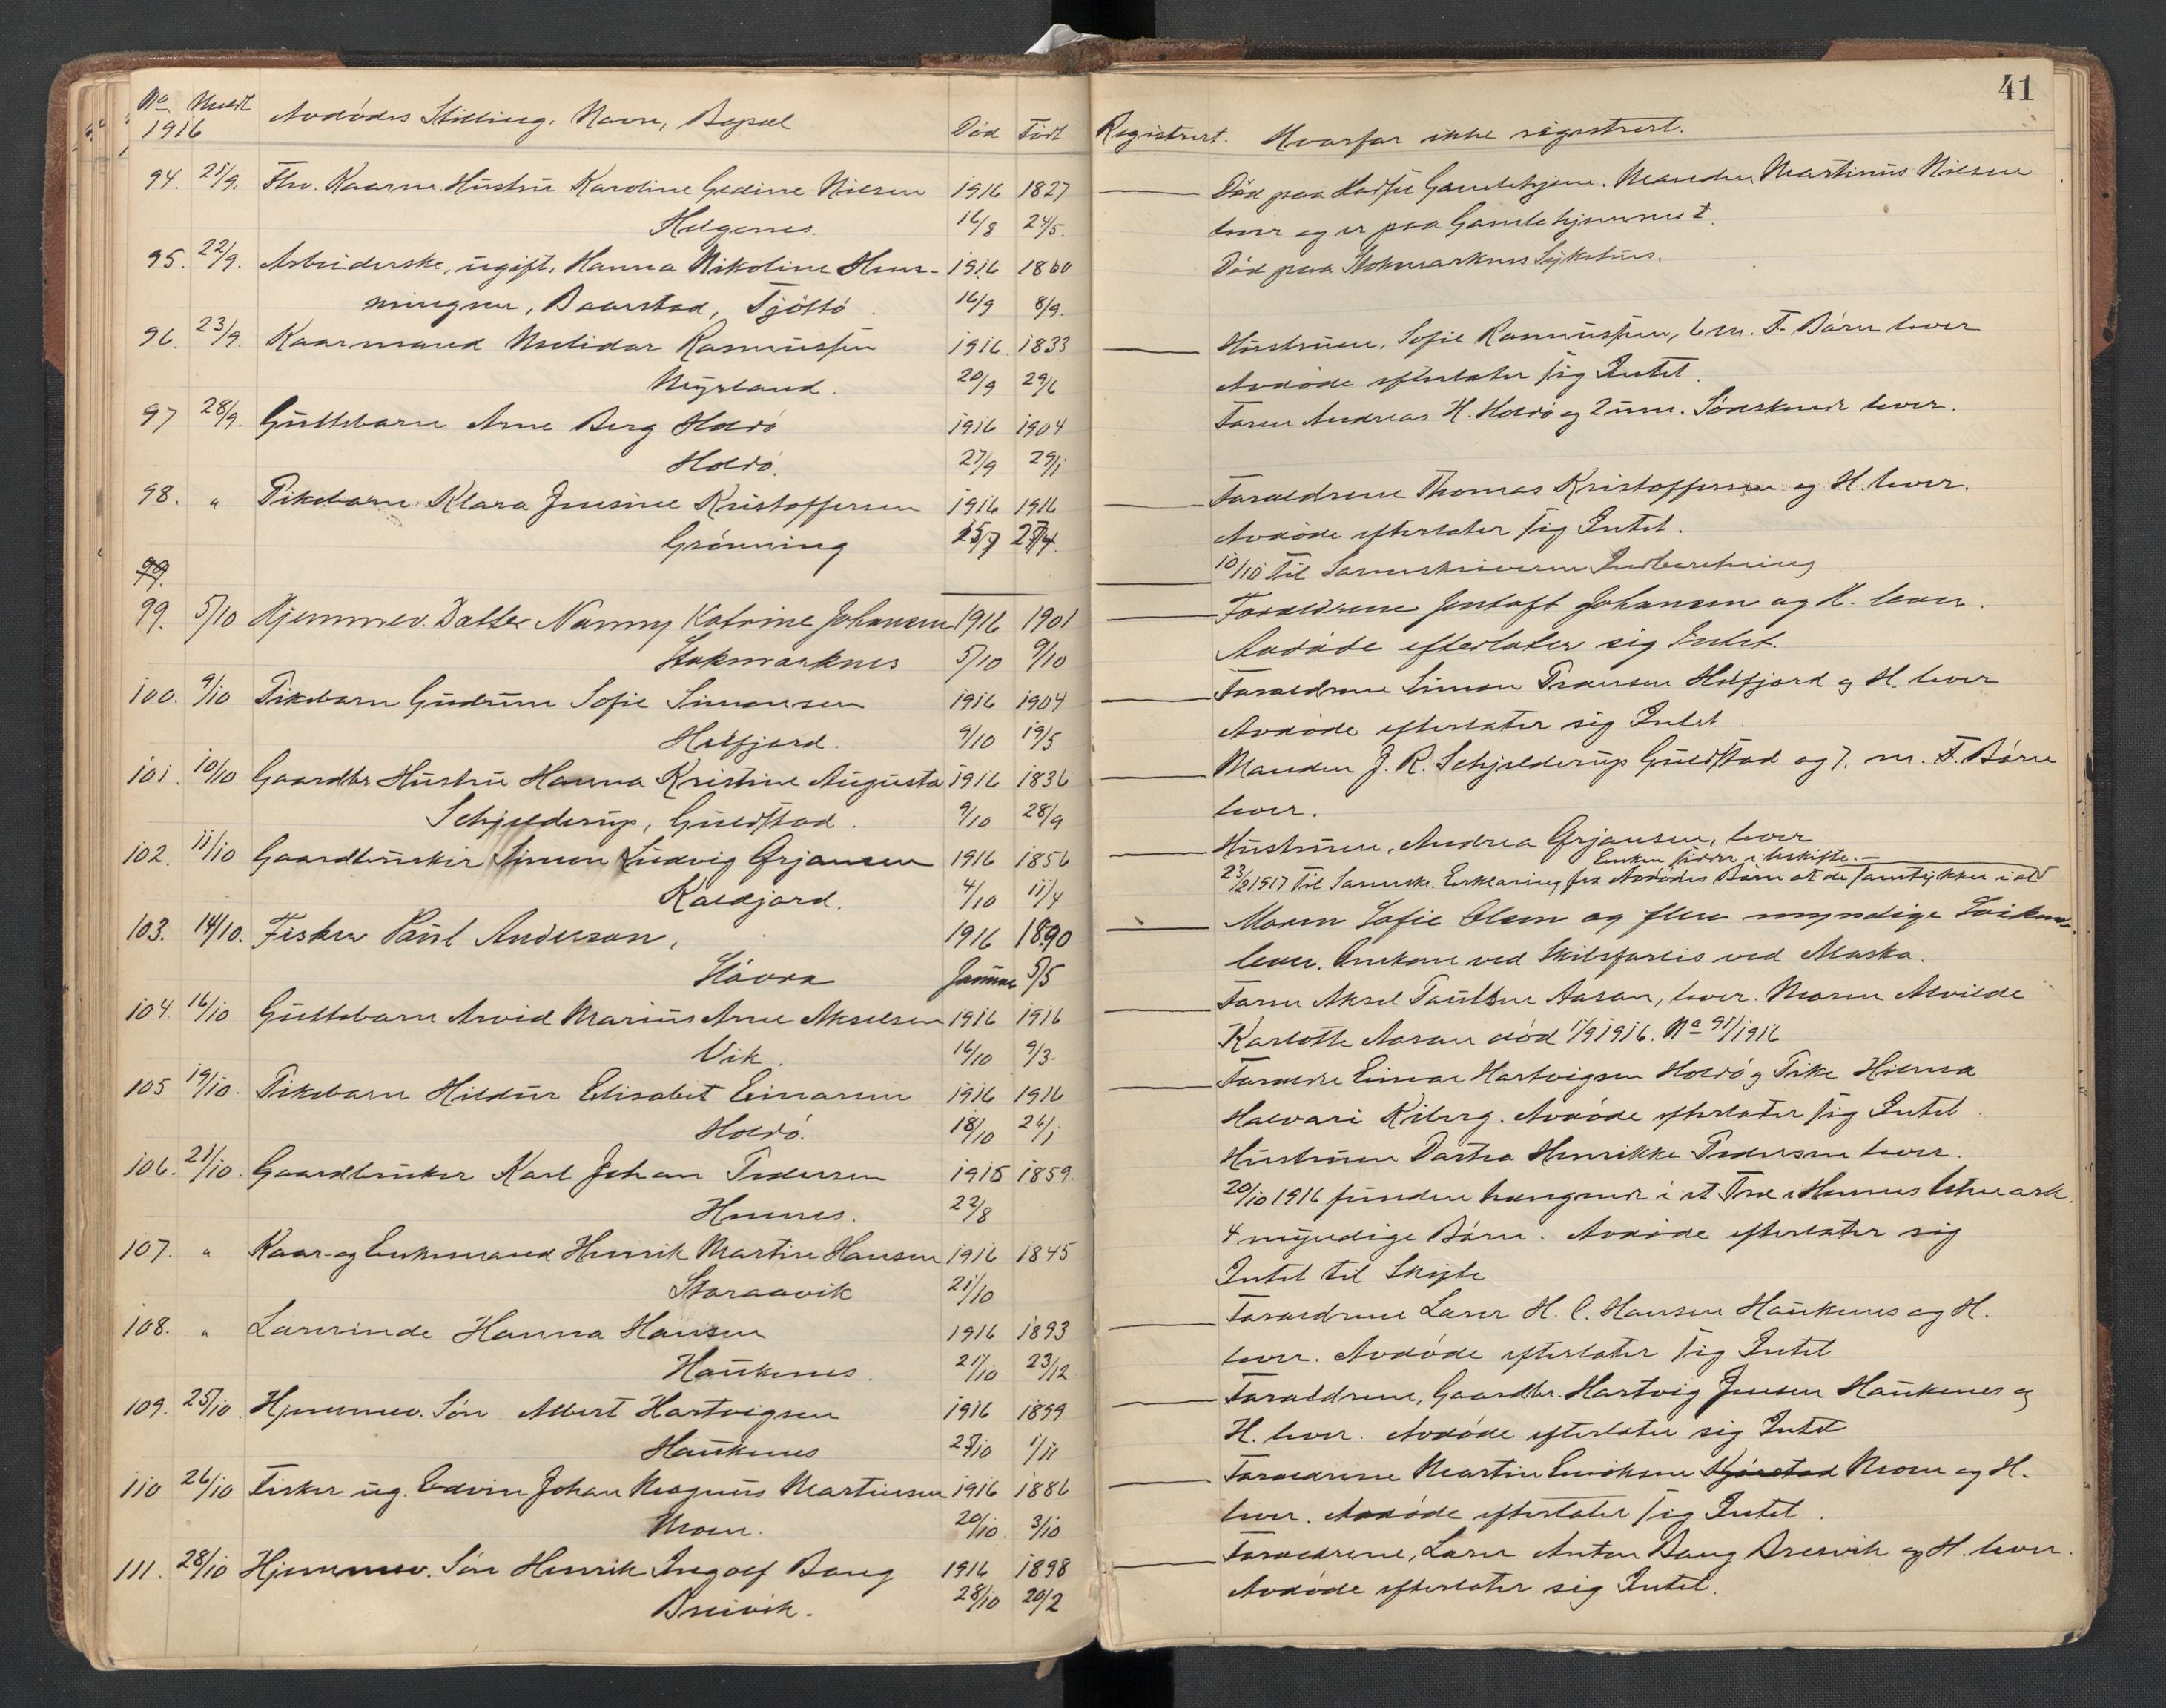 41
No. Meldt Avdødes Stilling, Navn, Bopæl Død Født Registrert. Hvorfor ikke registrert.
1916
94. 21/9. Fhv. Kaarm. Hustru Karoline Gedine Nilsen 1916 1827 Død paa Hadsel Gamlehjem. Manden Martinus Nilsen
Helgenes. 16/8 24/5. lever og er paa Gamlehjemmet.
95. 22/9. Arbeiderske, ugift, Hanna Nikoline Hen- 1916 1860 Død paa Stokmarknes Sykehus.
ningsen, Baarstad, Tjøttø. 16/9 8/9.
96. 23/9. Kaarmand Melidor Rasmussen 1916 1833 Hustruen, Sofie Rasmussen, 6 m. F. Børn lever
Myrland. 20/9 29/6 Avdøde efterlater sig Intet.
97 28/9. Guttebarn Arne Berg Holdø 1916 1904 Faren Andreas H. Holdø og 2 um. Søskende lever.
Holdø. 27/9 29/1
98. " Pikebarn Klara Jensine Kristoffersen 1916 1916 Forældrene Thomas Kristoffersen og H. lever.
Grønning 25/7 27/4. Avdøde efterlater sig Intet.
99. 10/10 Til Sorenskriveren Indberetning
99. 5/10 Hjemmev. Datter Nanny Katrine Johansen 1916 1901 Forældrene Jentoft Johansen og H. lever.
Stokmarknes 5/10 9/10 Avdøde efterlater sig Intet.
100. 9/10 Pikebarn Gudrun Sofie Simonsen 1916 1904 Forældrene Simon Pedersen Melfjord og H. lever
Melfjord. 9/10 19/5 Avdøde efterlater sig Intet.
101. 10/10 Gaardbr. Hustru Hanna Kristine Augusta 1916 1836 Manden J. R. Schjelderup Guldstad og 7. m. F. Børn
Schjelderup, Guldstad. 9/10 28/9 lever.
102. 11/10 Gaardbruker Simon Ludvig Ørjansen 1916 1856 Hustruen, Andrea Ørjansen, lever
Enken sidder i uskifte.
Kaldjord. 4/10 11/4 23/2 1917 Til Sorenskr. Erklæring fra Avdødes Børn at de samtykker i at
103. 14/10. Fisker Paul Anderson, 1916 1890 Moren Sofie Olsen og flere myndige Søskende
Skovra Januar 5/5 lever. Omkom ved Skibsforlis ved Alaska.
104. 16/10 Guttebarn Arvid Marius Arne Akselsen 1916 1916 Faren Aksel Paulsen Aasan, lever. Moren Alvilde
Vik. 16/10 9/3. Karlotte Aasan død 1/9 1916. No 91/1916
105 19/10. Pikebarn Hildur Elisabet Einarsen 1916 1916 Forældre Einar Hartvigsen Holdø og Pike Hilma
Holdø. 18/10 26/1 Halvari Kiberg. Avdøde efterlater sig Intet.
106. 21/10. Gaardbruker Karl Johan Pedersen 1915 1859. Hustruen Dortea Henrikke Pedersen lever.
Hennes. 22/8 20/10 1916 funden hængende i et Træ i Hennes Utmark.
107. " Kaar- og Enkemand Henrik Martin Hansen 1916 1845 4 myndige Børn. Avdøde efterlater sig
Storaavik 21/10 Intet til Skifte
108. " Lærerinde Hanna Hansen 1916 1893 Forældrene Lærer H. C. Hansen Haukenes og H.
Haukenes. 21/10 23/12 lever. Avdøde efterlater sig Intet
109. 25/10. Hjemmev. Søn Albert Hartvigsen 1916 1899 Forældrene, Gaardbr. Hartvig Jensen Haukenes og
Haukenes 25/10 1/11 H. lever. Avdøde efterlater sig Intet
110 26/10 Fisker ug. Edvin Johan Magnus Martinsen 1916 1886 Forældrene Martin Enoksen Moen og H.
Moen. 20/10. 3/10 lever. Avdøde efterlater sig Intet.
111. 28/10 Hjemmev. Søn Henrik Ingolf Bang 1916 1898 Forældrene, Lærer Anton Bang Breivik og H. lever.
Breivik. 28/10 20/2 Avdøde efterlater sig Intet.